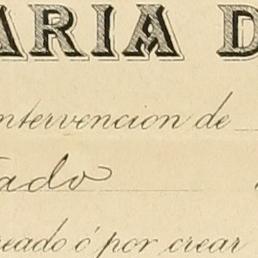 ARIA D
ntervencion de
ado
reado ó por crear